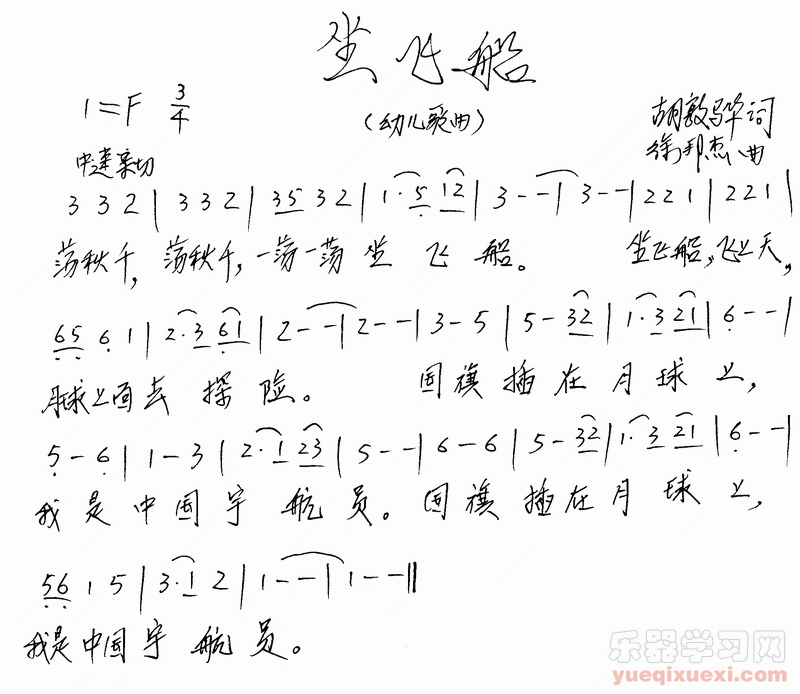 坐飞船
1=F 3/4
(幼儿歌曲)
胡敦骅词
徐邦杰曲
中速亲切
3 3 2 | 3 3 2 | 35 3 2 | 1· 5 12 | 3 - - | 3 - - | 2 2 1 | 2 2 1 |
荡秋千,荡秋千,一荡一荡坐飞船。 坐飞船,飞上天,
65 6 1 | 2·3 61 | 2 - - | 2 - - | 3 - 5 | 5 - 32 | 1·3 21 | 6 - - |
月球上面去探险。 国旗插在月球上,
5 - 6 | 1 - 3 | 2·1 23 | 5 - - | 6 - 6 | 5 - 32 | 1·3 21 | 6 - - |
我是中国宇航员。国旗插在月球上,
56 1 5 | 3·1 2 | 1 - - | 1 - - ‖
我是中国宇航员。
乐器学习网
yueqixuexi.com